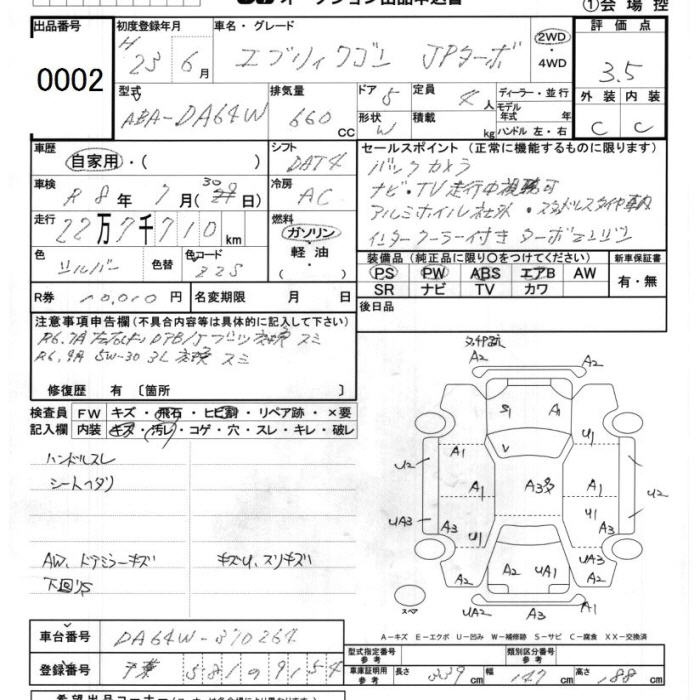 オークション出品申込書 ①会場控
出品番号 0002
初度登録年月 H 23 6月
車名・グレード エブリィワゴン JPターボ
2WD・4WD
評価点 3.5
外装 C 内装 C
型式 ABA-DA64W
排気量 660 CC
ドア 5 形状 W
定員 4人 積載 kg
ディーラー・並行
モデル年式 年式
ハンドル 左・右
車歴 自家用・( )
シフト DAT4
車検 R8年7月30日)
冷房 AC
走行 22万7千710km
燃料 ガソリン・軽油・( )
色 シルバー 色替 色コード Z2S
R券 10,010円 名変期限 月 日
セールスポイント(正常に機能するものに限ります)
バックカメラ
ナビ・TV走行中視聴可
アルミホイル社外・スタッドレスタイヤ車内
インタークーラー付きターボエンジン
装備品(純正品に限り○をつけてください)
PS PW ABS エアB AW
SR ナビ TV カワ
新車保証書 有・無
後日品
注意事項申告欄(不具合内容等は具体的に記入して下さい)
R6.7A 左右fut D/TB/Jブーツ交換スミ
R6.9A 5W-30 3L 交換スミ
修復歴 有〔箇所 〕
検査員記入欄
FW キズ・飛石・ヒビ割・リペア跡・×要
内装 キズ・汚レ・コゲ・穴・スレ・キレ・破レ
ハンドルスレ
シートヘタリ
AW、ドアミラーキズ キズU、スリキズ
下回リS
A2 A2
S1 A1
A1 V U1
U2 A1 A3多 A1 U2
UA3 A3 U1 U1 A3
A2 A2 UA1 A2
スペア UA2 A3 U1
A-キズ E-エクボ U-凹み W-補修跡 S-サビ C-腐食 XX-交換済
車台番号 DA64W-370264
登録番号 千葉 581 の 9154
型式指定番号 参考 類別区分番号 参考
車庫証明用参考 長さ 339cm 幅 147cm 高さ 188cm
希望出品コーナー